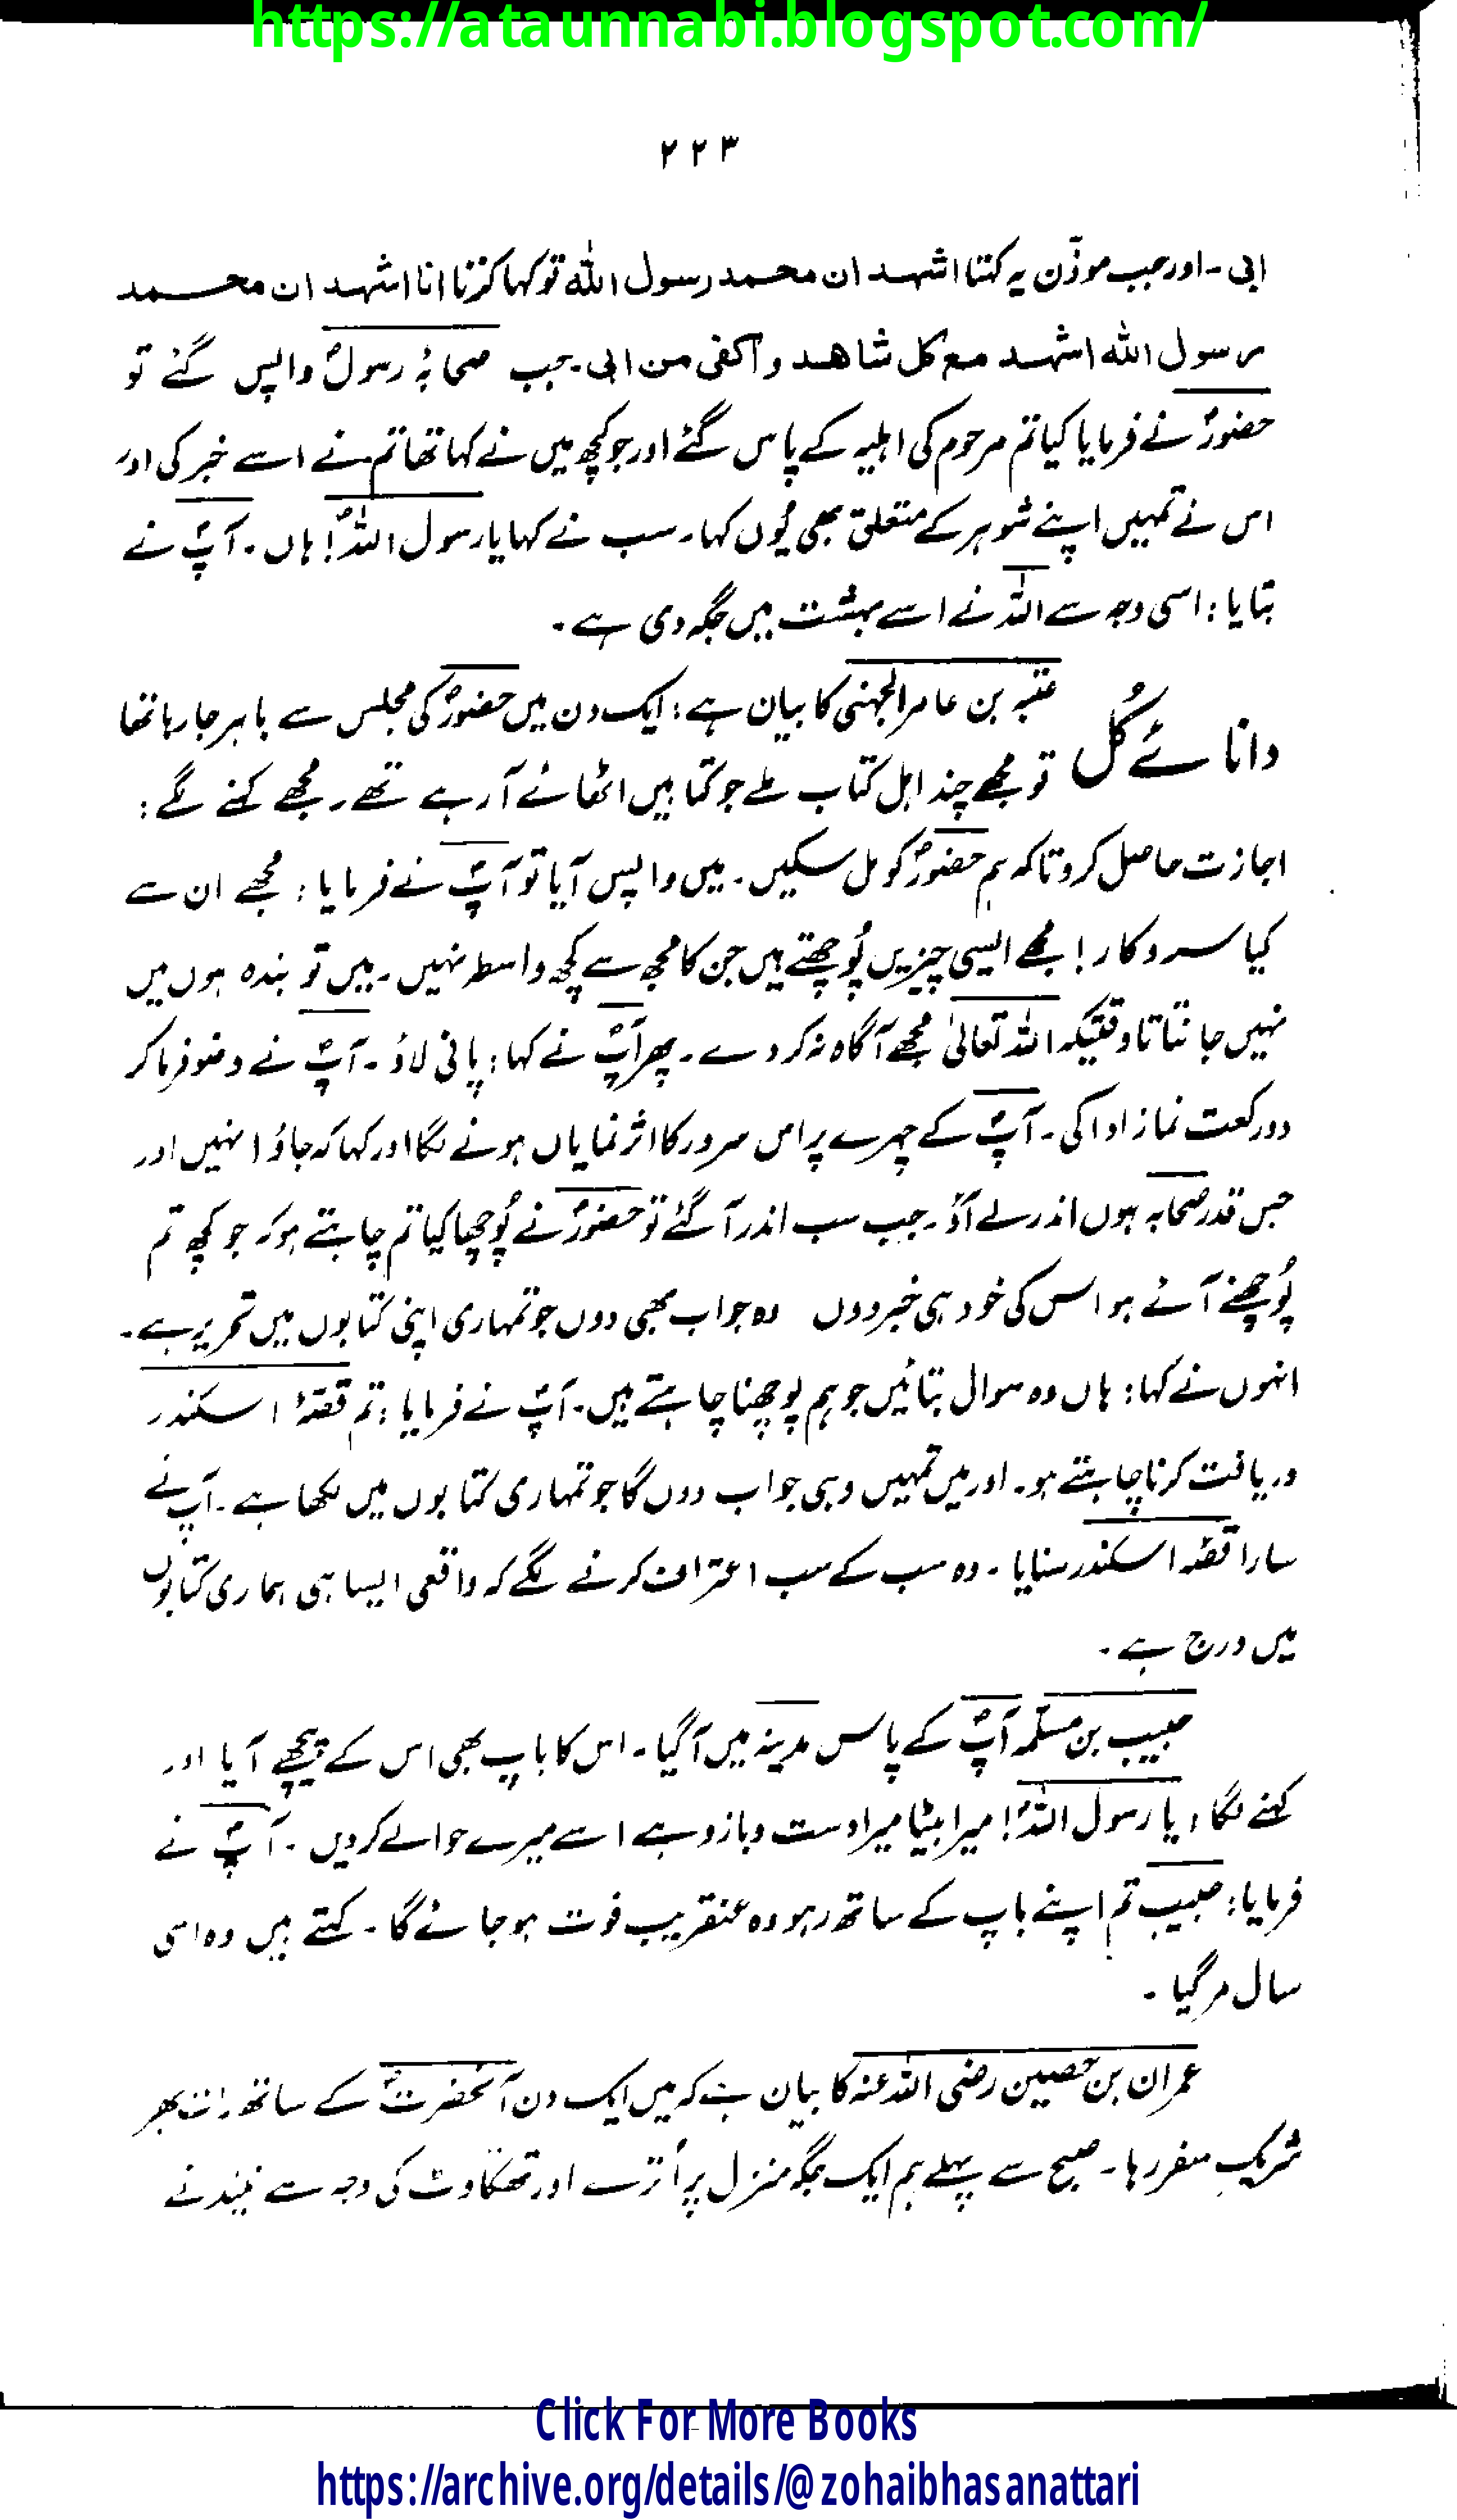 https://ataunnabi.blogspot.com/
۲۲۳
ابی۔ اور جب موذّن یہ کہتا اشہد ان محمد رسول اللہ تو کہا کرتا انا اشہد ان محمد
رسول اللہ اشہد مع کل شاھد واکفی من ابی۔ جب صحابۂ رسولؐ واپس گئے تو
حضورؐ نے فرمایا کیا تم مرحوم کی اہلیہ کے پاس گئے اور جو کچھ میں نے کہا تھا تم نے اسے خبر کی اور
اس نے تمہیں اپنے شوہر کے متعلق بھی یُوں کہا۔ سب نے کہا یا رسول اللہؐ! ہاں۔ آپؐ نے
بتایا: اسی وجہ سے اللہ نے اسے بہشت میں جگہ دی ہے۔
عتبہ بن عامر الجہنی کا بیان ہے: ایک دن میں حضورؐ کی مجلس سے باہر جا رہا تھا
دانائے کُل تو مجھے چند اہل کتاب ملے جو کتابیں اٹھائے آ رہے تھے۔ مجھے کہنے لگے:
اجازت حاصل کرو تاکہ ہم حضورؐ کو مل سکیں۔ میں واپس آیا تو آپؐ نے فرمایا: مجھے ان سے
کیا سروکار! مجھے ایسی چیزیں پُوچھتے ہیں جن کا مجھ سے کچھ واسطہ نہیں۔ میں تو بندہ ہوں میں
نہیں جانتا تاوقتیکہ اللہ تعالیٰ مجھے آگاہ نہ کر دے۔ پھر آپؐ نے کہا: پانی لاؤ۔ آپؐ نے وضو فرما کر
دو رکعت نماز ادا کی۔ آپؐ کے چہرے پر اس سرور کا اثر نمایاں ہونے لگا اور کہا کہ جاؤ انہیں اور
جس قدر صحابہ ہوں اندر لے آؤ۔ جب سب اندر آ گئے تو حضورؐ نے پُوچھا کیا تم چاہتے ہو کہ جو کچھ تم
پُوچھنے آئے ہو اس کی خود ہی خبر دوں وہ جواب بھی دوں جو تمہاری اپنی کتابوں میں تحریر ہے۔
انہوں نے کہا: ہاں وہ سوال بتائیں جو ہم پوچھنا چاہتے ہیں۔ آپؐ نے فرمایا: تم قصّۂ اسکندر
دریافت کرنا چاہتے ہو۔ اور میں تمہیں وہی جواب دوں گا جو تمہاری کتابوں میں لکھا ہے۔ آپ نے
سارا قصّہ اسکندر سنایا۔ وہ سب کے سب اعتراف کرنے لگے کہ واقعی ایسا ہی ہماری کتابوں
میں درج ہے۔
حبیب بن مسلّمہ آپؐ کے پاس مدینہ میں آ گیا۔ اس کا باپ بھی اس کے پیچھے آیا اور
کہنے لگا، یا رسول اللہؐ! میرا بیٹا میرا دست و بازو ہے اسے میرے حوالے کر دیں۔ آپؐ نے
فرمایا: حبیب تم اپنے باپ کے ساتھ رہو وہ عنقریب فوت ہو جائے گا۔ کہتے ہیں وہ اسی
سال مر گیا۔
عمران بن حصین رضی اللہ عنہ کا بیان ہے کہ میں ایک دن آنحضرتؐ کے ساتھ رات بھر
شریکِ سفر رہا۔ صبح سے پہلے ہم ایک جگہ منزل پر اُترے اور تھکاوٹ کی وجہ سے نیند نے
Click For More Books
https://archive.org/details/@zohaibhasanattari